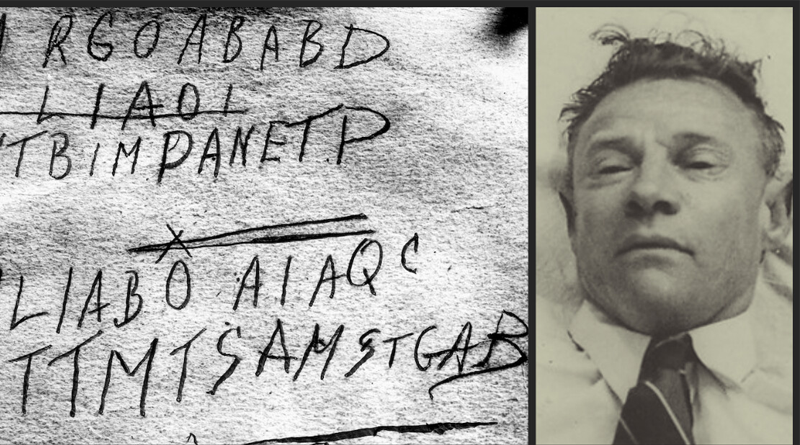 RGOABABD
LIAOI
TBIMPANETP
X
LIABO AIAQC
TTMTSAMSTGAB